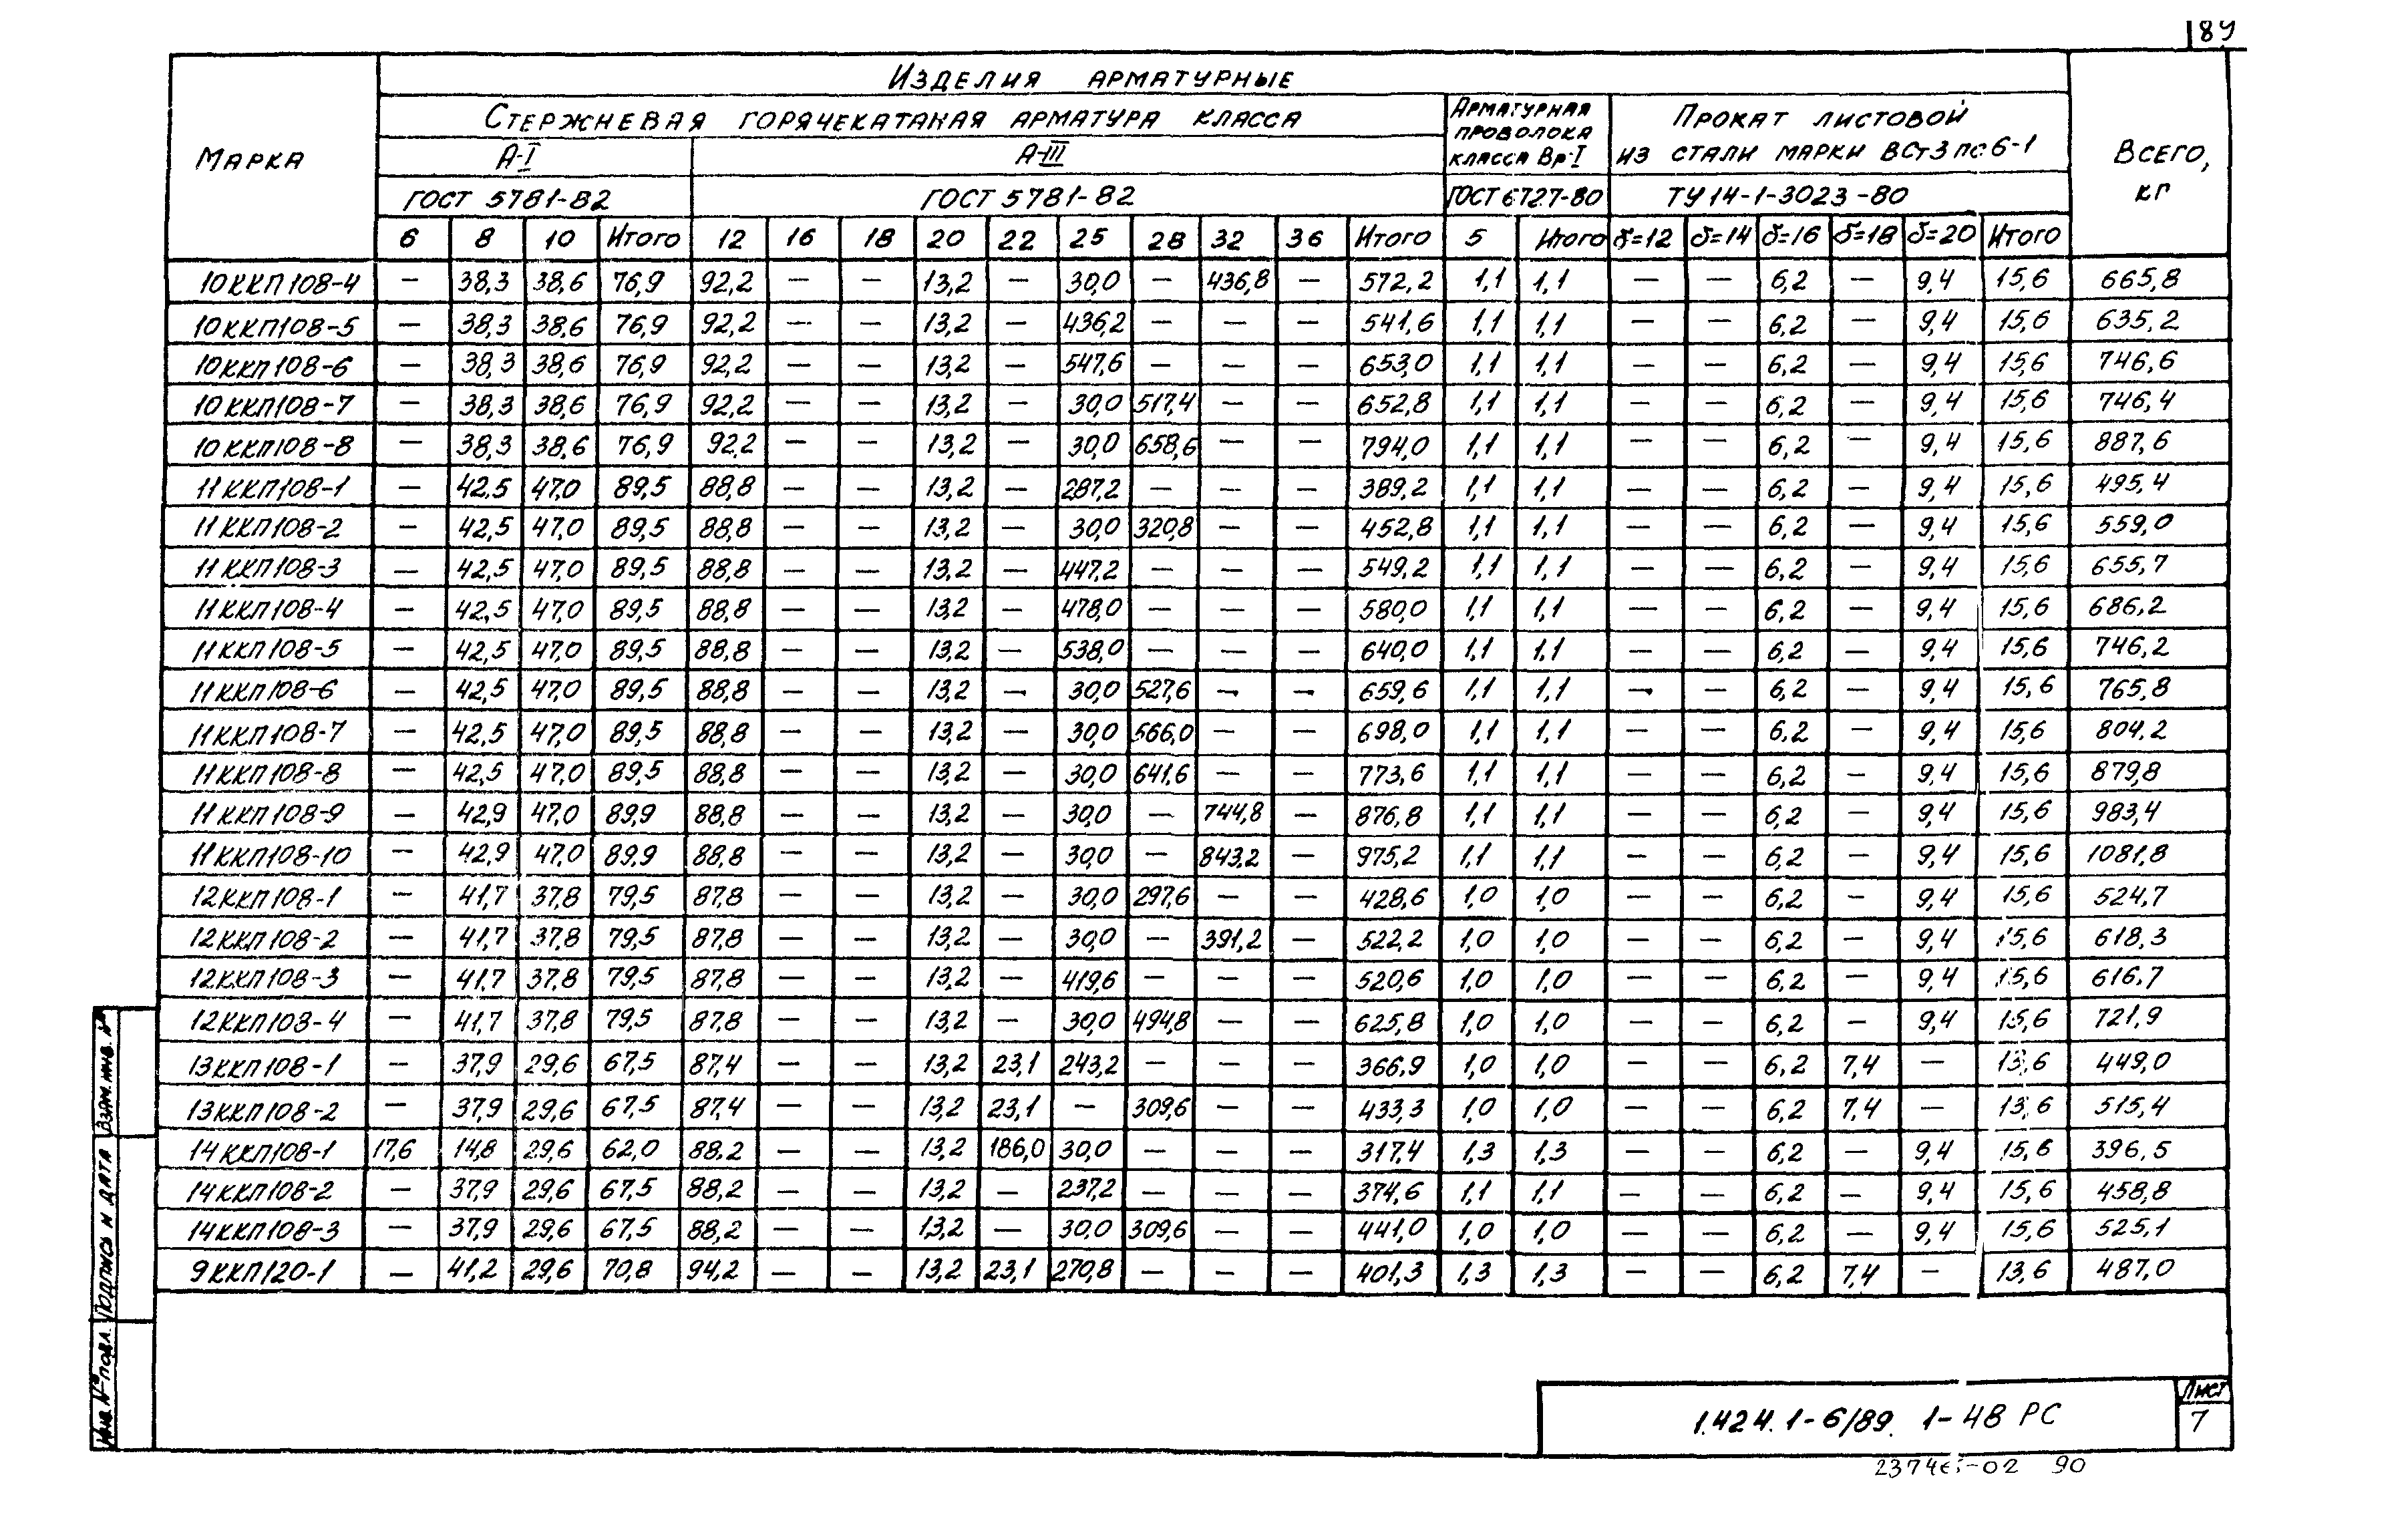 89
Изделия арматурные
Стержневая горячекатаная арматура класса
Арматурная проволока класса Вр-I
Прокат листовой из стали марки ВСт3пс6-1
Марка
А-I
А-III
Всего, кг
ГОСТ 5781-82
ГОСТ 5781-82
ГОСТ 6727-80
ТУ 14-1-3023-80
6 8 10 Итого 12 16 18 20 22 25 28 32 36 Итого 5 Итого δ=12 δ=14 δ=16 δ=18 δ=20 Итого
10ККП108-4 — 38,3 38,6 76,9 92,2 — — 13,2 — 30,0 — 436,8 — 572,2 1,1 1,1 — — 6,2 — 9,4 15,6 665,8
10ККП108-5 — 38,3 38,6 76,9 92,2 — — 13,2 — 436,2 — — — 541,6 1,1 1,1 — — 6,2 — 9,4 15,6 635,2
10ККП108-6 — 38,3 38,6 76,9 92,2 — — 13,2 — 547,6 — — — 653,0 1,1 1,1 — — 6,2 — 9,4 15,6 746,6
10ККП108-7 — 38,3 38,6 76,9 92,2 — — 13,2 — 30,0 517,4 — — 652,8 1,1 1,1 — — 6,2 — 9,4 15,6 746,4
10ККП108-8 — 38,3 38,6 76,9 92,2 — — 13,2 — 30,0 658,6 — — 794,0 1,1 1,1 — — 6,2 — 9,4 15,6 887,6
11ККП108-1 — 42,5 47,0 89,5 88,8 — — 13,2 — 287,2 — — — 389,2 1,1 1,1 — — 6,2 — 9,4 15,6 495,4
11ККП108-2 — 42,5 47,0 89,5 88,8 — — 13,2 — 30,0 320,8 — — 452,8 1,1 1,1 — — 6,2 — 9,4 15,6 559,0
11ККП108-3 — 42,5 47,0 89,5 88,8 — — 13,2 — 447,2 — — — 549,2 1,1 1,1 — — 6,2 — 9,4 15,6 655,7
11ККП108-4 — 42,5 47,0 89,5 88,8 — — 13,2 — 478,0 — — — 580,0 1,1 1,1 — — 6,2 — 9,4 15,6 686,2
11ККП108-5 — 42,5 47,0 89,5 88,8 — — 13,2 — 538,0 — — — 640,0 1,1 1,1 — — 6,2 — 9,4 15,6 746,2
11ККП108-6 — 42,5 47,0 89,5 88,8 — — 13,2 — 30,0 527,6 — — 659,6 1,1 1,1 — — 6,2 — 9,4 15,6 765,8
11ККП108-7 — 42,5 47,0 89,5 88,8 — — 13,2 — 30,0 566,0 — — 698,0 1,1 1,1 — — 6,2 — 9,4 15,6 804,2
11ККП108-8 — 42,5 47,0 89,5 88,8 — — 13,2 — 30,0 641,6 — — 773,6 1,1 1,1 — — 6,2 — 9,4 15,6 879,8
11ККП108-9 — 42,9 47,0 89,9 88,8 — — 13,2 — 30,0 — 744,8 — 876,8 1,1 1,1 — — 6,2 — 9,4 15,6 983,4
11ККП108-10 — 42,9 47,0 89,9 88,8 — — 13,2 — 30,0 — 843,2 — 975,2 1,1 1,1 — — 6,2 — 9,4 15,6 1081,8
12ККП108-1 — 41,7 37,8 79,5 87,8 — — 13,2 — 30,0 297,6 — — 428,6 1,0 1,0 — — 6,2 — 9,4 15,6 524,7
12ККП108-2 — 41,7 37,8 79,5 87,8 — — 13,2 — 30,0 — 391,2 — 522,2 1,0 1,0 — — 6,2 — 9,4 15,6 618,3
12ККП108-3 — 41,7 37,8 79,5 87,8 — — 13,2 — 419,6 — — — 520,6 1,0 1,0 — — 6,2 — 9,4 15,6 616,7
12ККП108-4 — 41,7 37,8 79,5 87,8 — — 13,2 — 30,0 494,8 — — 625,8 1,0 1,0 — — 6,2 — 9,4 15,6 721,9
13ККП108-1 — 37,9 29,6 67,5 87,4 — — 13,2 23,1 243,2 — — — 366,9 1,0 1,0 — — 6,2 7,4 — 13,6 449,0
13ККП108-2 — 37,9 29,6 67,5 87,4 — — 13,2 23,1 — 309,6 — — 433,3 1,0 1,0 — — 6,2 7,4 — 13,6 515,4
14ККП108-1 17,6 14,8 29,6 62,0 88,2 — — 13,2 186,0 30,0 — — — 317,4 1,3 1,3 — — 6,2 — 9,4 15,6 396,5
14ККП108-2 — 37,9 29,6 67,5 88,2 — — 13,2 — 237,2 — — — 374,6 1,1 1,1 — — 6,2 — 9,4 15,6 458,8
14ККП108-3 — 37,9 29,6 67,5 88,2 — — 13,2 — 30,0 309,6 — — 441,0 1,0 1,0 — — 6,2 — 9,4 15,6 525,1
9ККП120-1 — 41,2 29,6 70,8 94,2 — — 13,2 23,1 270,8 — — — 401,3 1,3 1,3 — — 6,2 7,4 — 13,6 487,0
Взам. инв. №
Подпись и дата
Инв. № подл.
1.424.1-6/89. 1-48 РС
Лист
7
90